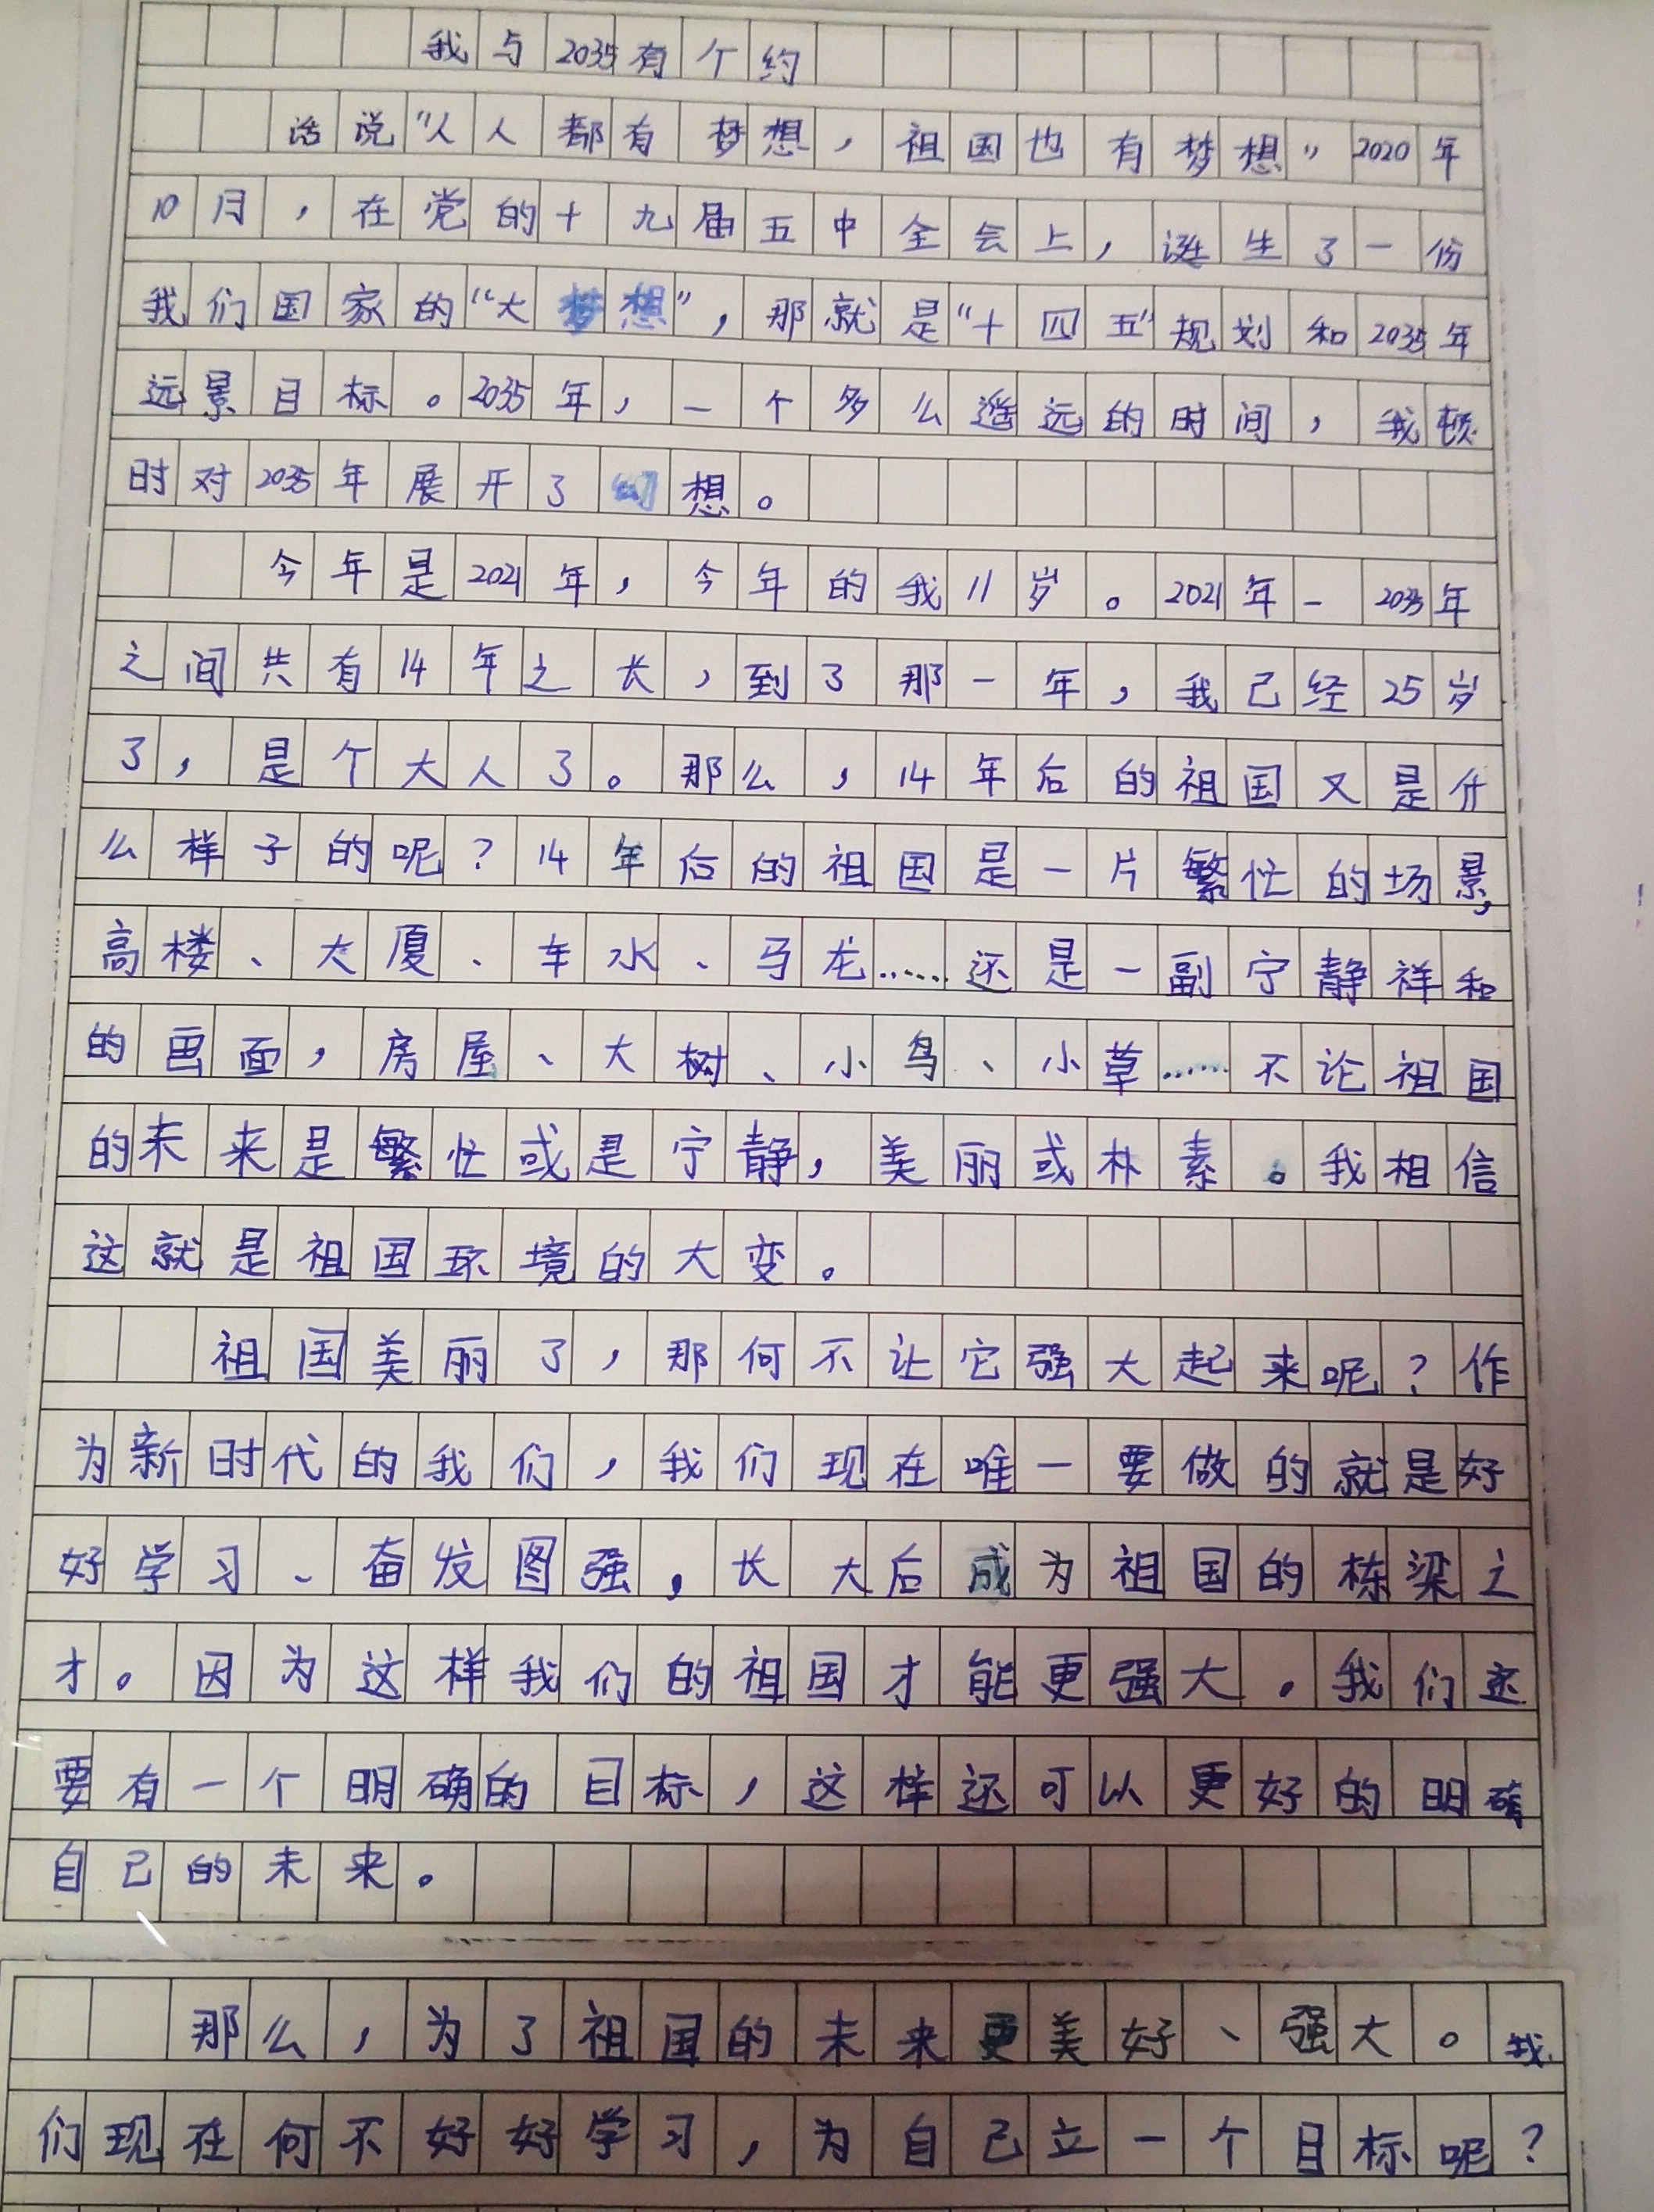 我与2035有个约
话说“人人都有梦想，祖国也有梦想”2020年
10月，在党的十九届五中全会上，诞生了一份
我们国家的“大梦想”，那就是“十四五”规划和2035年
远景目标。2035年，一个多么遥远的时间，我顿
时对2035年展开了幻想。
今年是2021年，今年的我11岁。2021年-2035年
之间共有14年之长，到了那一年，我已经25岁
了，是个大人了。那么，14年后的祖国又是什
么样子的呢？14年后的祖国是一片繁忙的场景，
高楼、大厦、车水、马龙……还是一副宁静祥和
的画面，房屋、大树、小鸟、小草……不论祖国
的未来是繁忙或是宁静，美丽或朴素。我相信
这就是祖国环境的大变。
祖国美丽了，那何不让它强大起来呢？作
为新时代的我们，我们现在唯一要做的就是好
好学习、奋发图强，长大后成为祖国的栋梁之
才。因为这样我们的祖国才能更强大。我们还
要有一个明确的目标，这样还可以更好的明确
自己的未来。
那么，为了祖国的未来更美好、强大。我
们现在何不好好学习，为自己立一个目标呢？